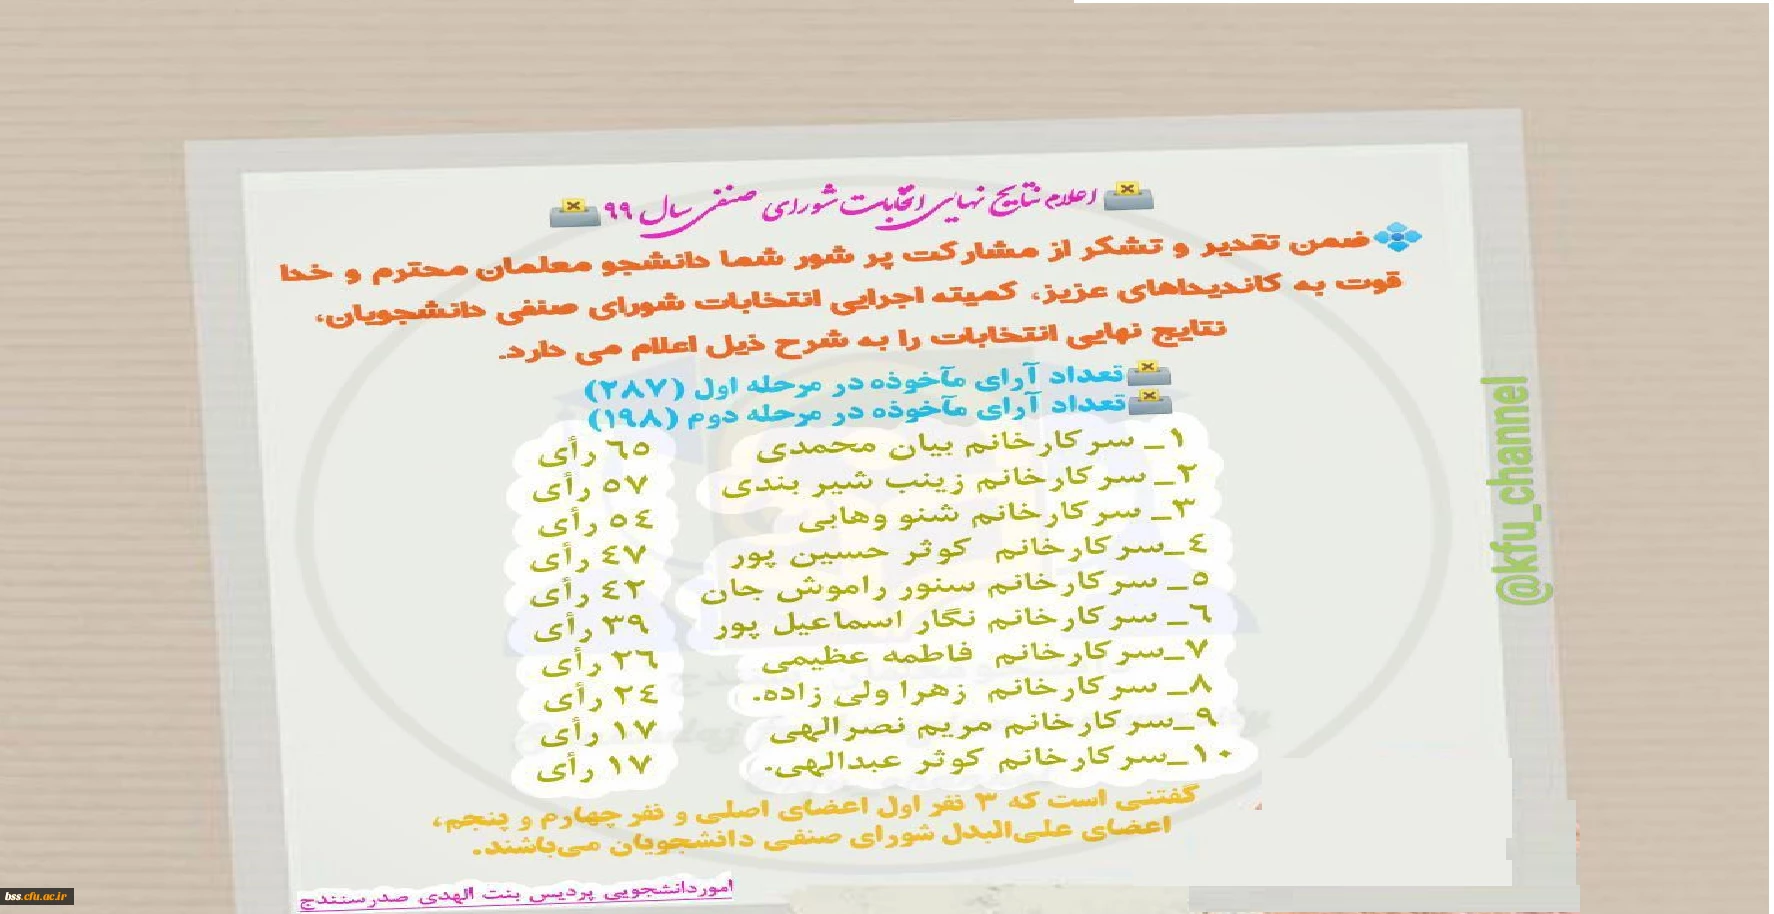 اعلام نتایج نهایی انتخابات شورای صنفی سال ۹۹
ضمن تقدیر و تشکر از مشارکت پر شور شما دانشجو معلمان محترم و خدا
قوت به کاندیداهای عزیز، کمیته اجرایی انتخابات شورای صنفی دانشجویان،
نتایج نهایی انتخابات را به شرح ذیل اعلام می دارد.
تعداد آرای مآخوذه در مرحله اول (۲۸۷)
تعداد آرای مآخوذه در مرحله دوم (۱۹۸)
۱_ سرکارخانم بیان محمدی ٦٥ رأی
۲_ سرکارخانم زینب شیر بندی ٥٧ رأی
۳_ سرکارخانم شنو وهابی ٥٤ رأی
٤_سرکارخانم کوثر حسین پور ٤٧ رأی
٥_ سرکارخانم سنور راموش جان ٤٢ رأی
٦_ سرکارخانم نگار اسماعیل پور ۳۹ رأی
۷_سرکارخانم فاطمه عظیمی ٢٦ رأی
۸_ سرکارخانم زهرا ولی زاده. ٢٤ رأی
۹_سرکارخانم مریم نصرالهی ۱۷ رأی
۱۰_سرکارخانم کوثر عبدالهی. ۱۷ رأی
گفتنی است که ۳ نفر اول اعضای اصلی و نفر چهارم و پنجم،
اعضای علی‌البدل شورای صنفی دانشجویان می‌باشند.
اموردانشجویی پردیس بنت الهدی صدرسنندج
@kfu_channel
bss.cfu.ac.ir